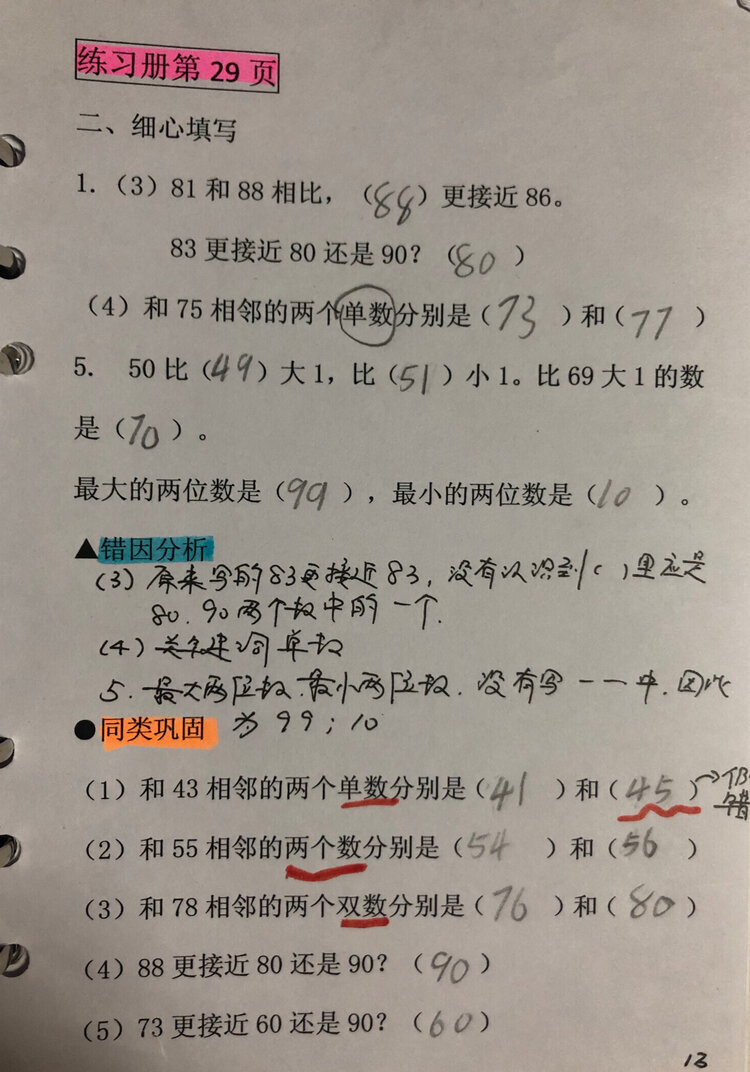 练习册第 29 页
二、细心填写
1.（3）81 和 88 相比，（88）更接近 86。
83 更接近 80 还是 90？（80 ）
（4）和 75 相邻的两个单数分别是（73 ）和（77 ）
5. 50 比（49）大 1，比（51）小 1。比 69 大 1 的数
是（70 ）。
最大的两位数是（99 ），最小的两位数是（10 ）。
▲错因分析
(3) 原来写的83更接近83，没有认识到( )里应是
80.90两个数中的一个.
(4) 关键词单数
5. 最大两位数.最小两位数.没有写一一中.因此
●同类巩固 为99；10
（1）和 43 相邻的两个单数分别是（41 ）和（45 ）→仍
错
（2）和 55 相邻的两个数分别是（54 ）和（56 ）
（3）和 78 相邻的两个双数分别是（76 ）和（80 ）
（4）88 更接近 80 还是 90？（90 ）
（5）73 更接近 60 还是 90？（60 ）
13